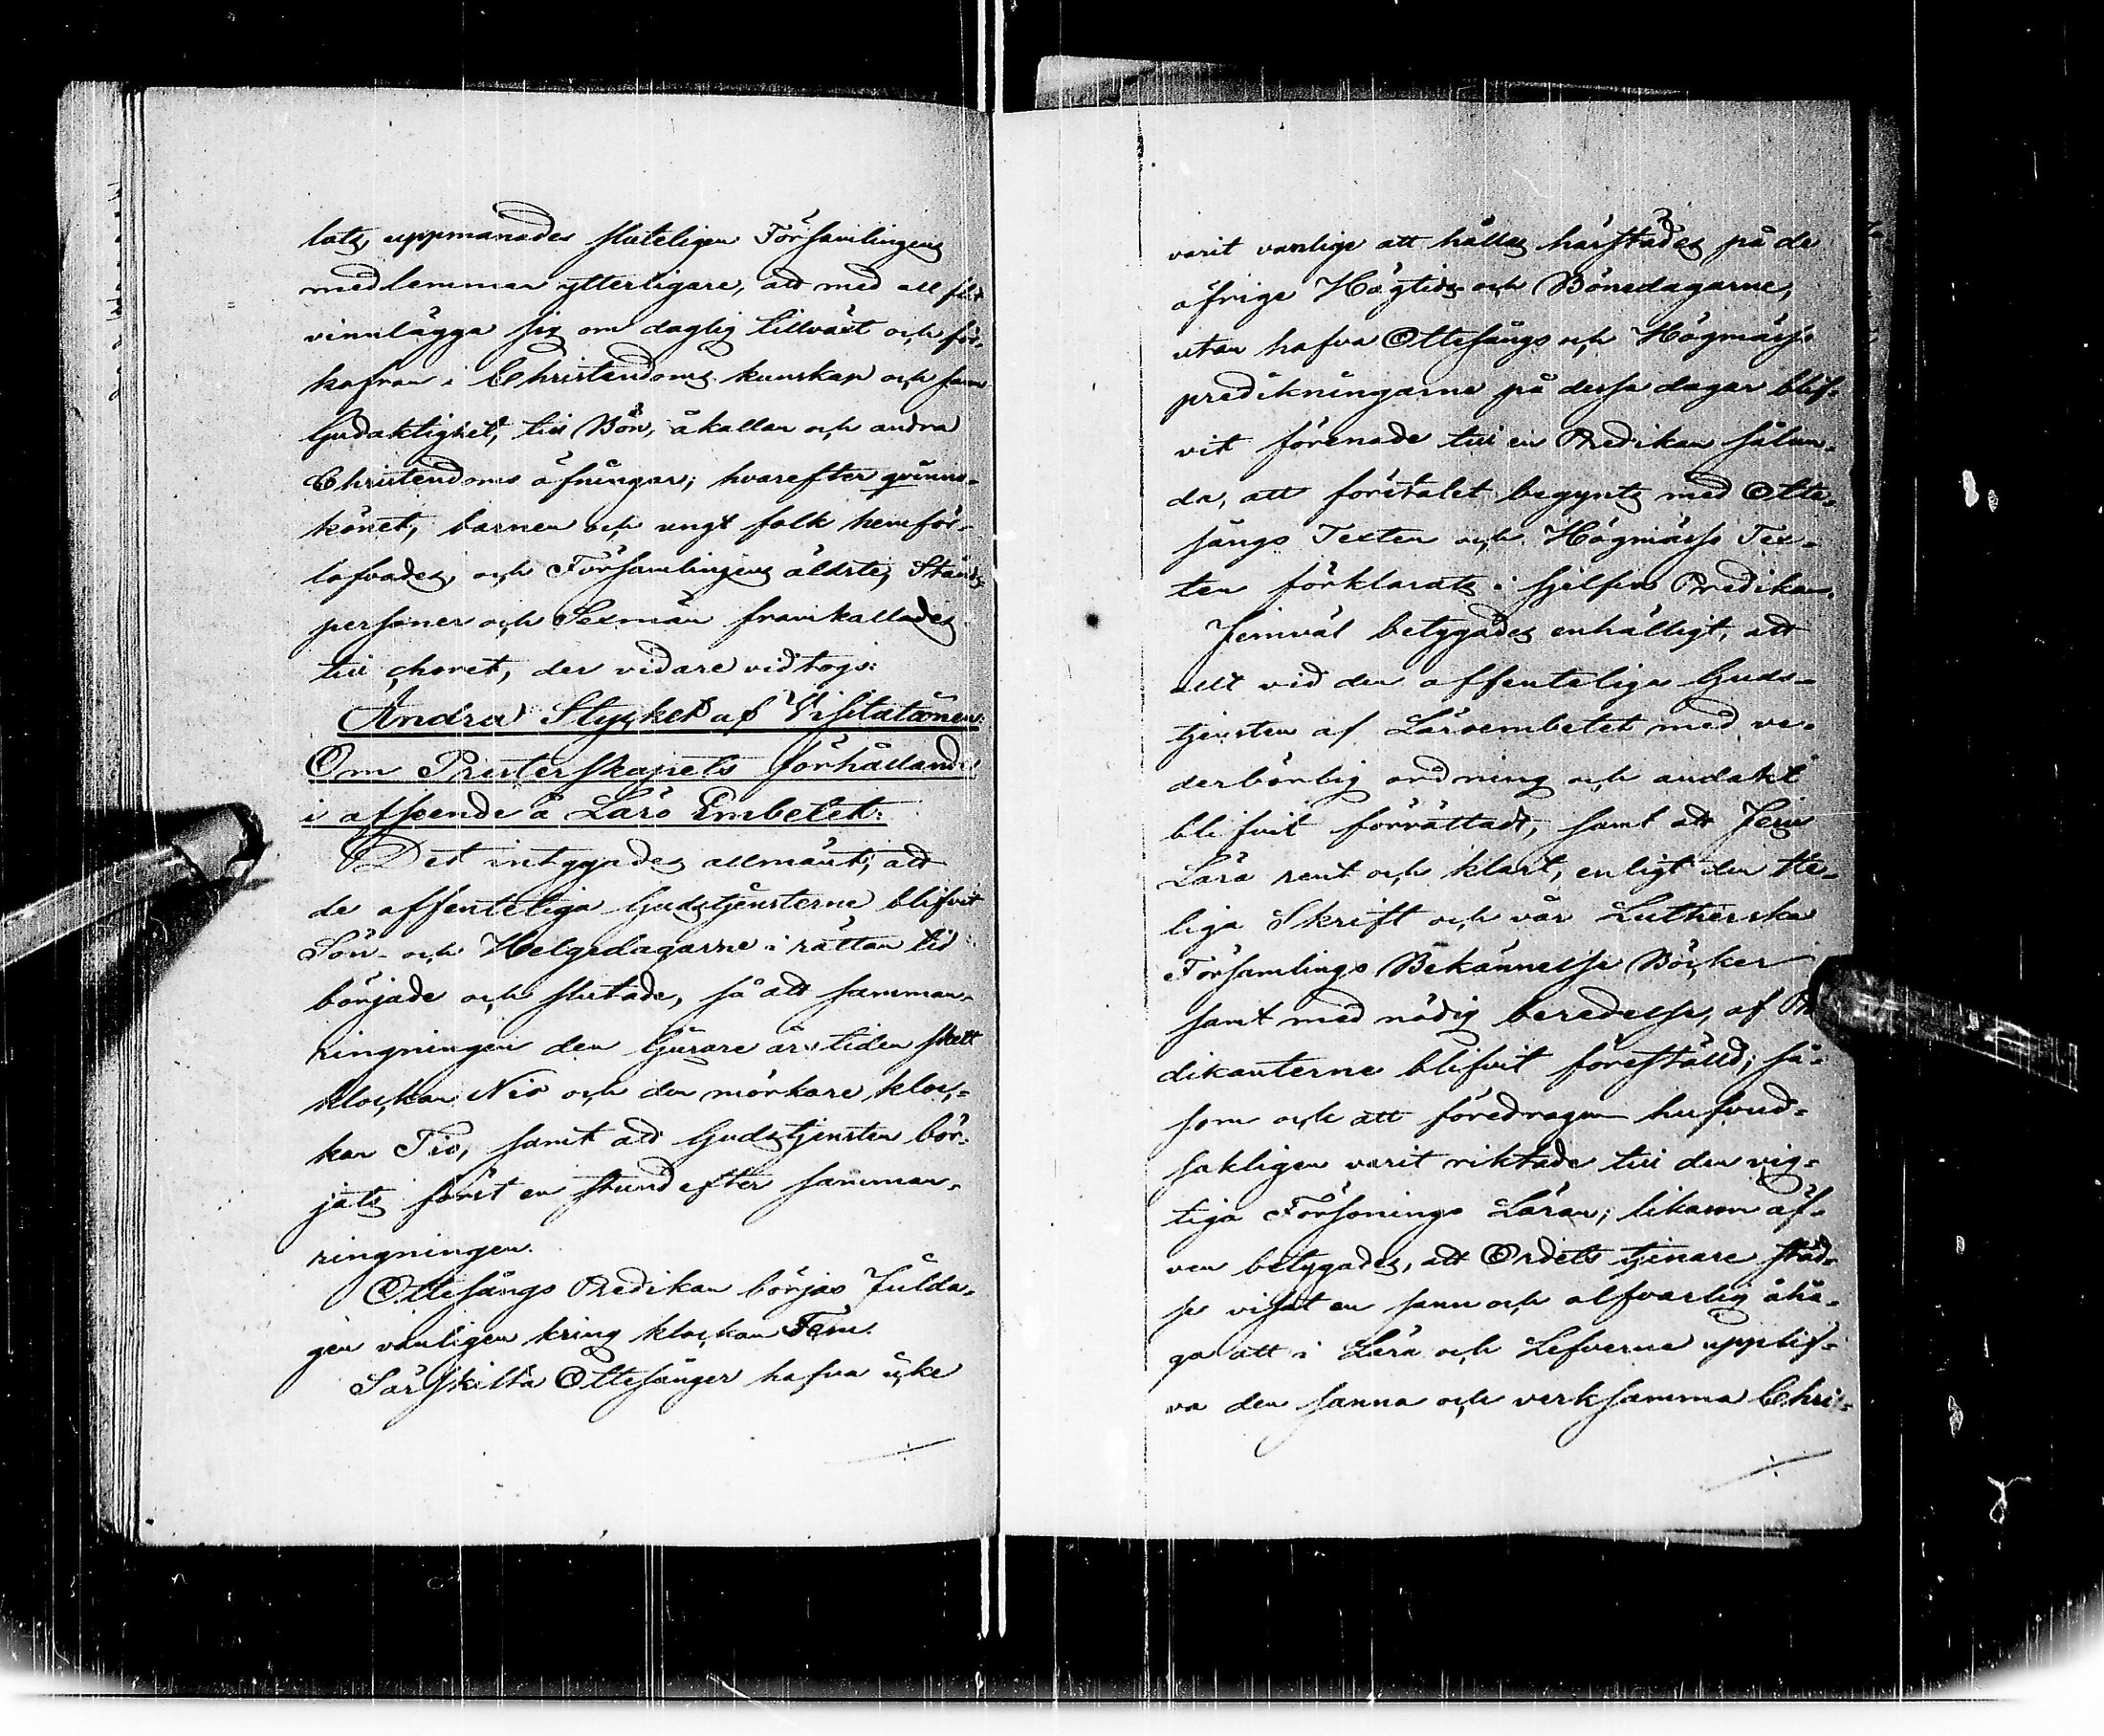 lats, uppmanades sluteligen Församlingens
medlemmar ytterligare, att med all flit
vinnlägga sig om daglig tillväxt och för-
kofran i Christendoms kunskap och sann
Gudaktighet, till Bön, åkallan och andra
Christendoms öfningar; hvarefter qvinno-
könet, barnen och ungt folk hemför-
lofvades, och Församlingens äldste, Stånds
personer och Sexmän framkallades
till choret, der vidare vidtogs:
Andra Stycket af Visitationen.
Om Presterskapets förhållande
i afseende å Läro Embetet:
Det intygades allmänt, att
de offenteliga Gudstjensterne blifvit
Sön- och Helgedagarne i rättan tid
började och slutade, så att samman-
ringningen den ljusare årstiden skett
klockan Nio och den mörkare kloc-
kan Tio, samt att Gudstjensten bör-
jats först en stund efter samman-
ringningen.
Ottesångs Predikan börjas Julda-
gen vanligen kring klockan Fem.
Särskilta Ottesånger hafva icke
varit vanlige att hållas härstädes på de
öfrige Högtids och Bönedagarne,
utan hafva Ottesångs och Högmässo
predikningarne på dessa dagar blif-
vit förenade till en Predikan sålun-
da, att förstalet begynts med Otte-
sångs Texten och Högmässo Tex-
ten förklarats i sjelfva Predikan.
Jemväl betygades enhälligt, att
allt vid den offenteliga Guds-
tjensten af Läroembetet med ve-
derbörlig ordning och andakt
blifvit förrättadt, samt att Jesu
Lära rent och klart, enligt den He-
liga Skrift och vår Lutherska
Församlings Bekännelse Böcker
samt med nödig beredelse, af Pre
dikanterne blifvit föreställd; så-
som och att föredragen hufvud-
sakligen varit riktade till den vig-
tiga Försonings Läran; likasom äf-
ven betygades, att Ordets tjenare städ-
se visat en sann och alfvarlig åhå-
ga att i Lära och Lefverne upplif-
va den sanna och verksamma Chri-